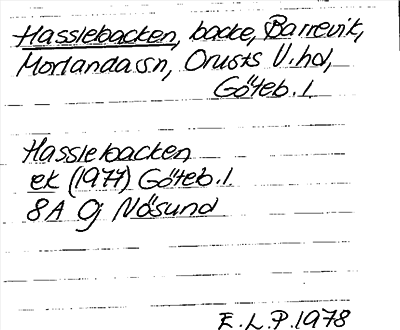 Hasslebacken, backe, Barrevik,
Morlanda sn, Orusts V. hd,
Göteb. l.
Hasslebacken
ek (1977) Göteb. l.
8A 9j Nösund
E.L.P. 1978